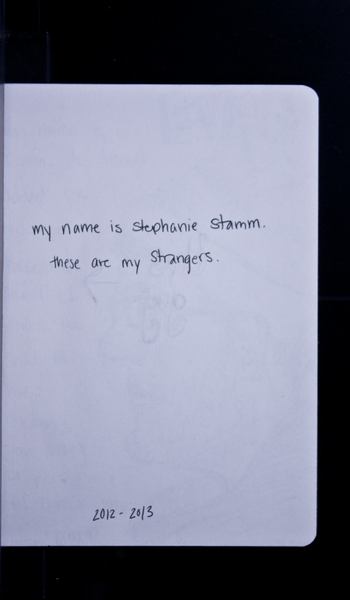 my name is stephanie stamm.
these are my strangers.
2012 - 2013